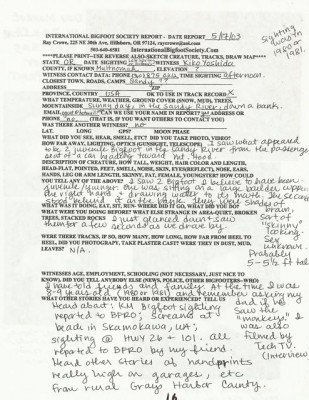 INTERNATIONAL BIGFOOT SOCIETY REPORT - DATE REPORT 5/07/03
Ray Crowe, 225 NE 30th Ave, Hillsboro, OR 97124, raycrowe@aol.com
503-640-6581 InternationalBigfootSociety.Com
sighting was in 1980 or 1981.
****PLEASE PRINT--USE REVERSE ALSO-SKETCH CREATURE, TRACKS, DRAW MAP****
STATE OR DATE SIGHTED WITNESS Kiko Yoshida
COUNTY, IF KNOWN Multnomah, ELEVATION
WITNESS CONTACT DATA: PHONE TIME SIGHTING afternoon.
CLOSEST TOWN, ROADS, CAMPS Sandy
ADDRESS ZIP
PROVINCE, COUNTRY USA OR TO USE IN TRACK RECORD X
WHAT TEMPERATURE, WEATHER, GROUND COVER (SNOW, MUD), TREES,
MOUNTAINS Sunny day, in the Sandy River, down a bank.
EMAIL CAN WE USE YOUR NAME IN REPORT? OR ADDRESS OR
PHONE no, (THAT IS, IF YOU WANT OTHERS TO CONTACT YOU)
WAS THERE ANOTHER WITNESS? no
LAT. LONG GPS? MOON PHASE
WHAT DID YOU SEE, HEAR, SMELL, ETC? DID YOU TAKE PHOTO, VIDEO?
HOW FAR AWAY, LIGHTING, OPTICS (GUNSIGHT, TELESCOPE) I saw what appeared
to be 2 juvenile bigfoot in the Sandy River from the passenger
seat of a car heading toward Mt. Hood
DESCRIPTION OF CREATURE, TALL, WEIGHT, HAIR COLOR AND LENGTH,
HEAD-FLAT, POINTED, FEET, SMELL, NOSE, SKIN, EYES(REFLECT), NOSE, EARS,
HANDS, LEG OR ARM LENGTH, SKINNY, FAT, FEMALE, YOUNGSTER? HOW COULD
YOU TELL ANY OF THE ABOVE? I saw 2 Bigfoot I believe to have been
juvenile/younger. One was sitting on a large boulder w/paper in
the right hand + drawing water to its mouth. The second
stood behind at a flat bank. They were shades of
brain. Sort of "skinny" looking. Sex unknown. Probably 5 - 5 1/2 ft tall
WHAT WAS IT DOING, EAT, SIT, RUN--WHERE DID IT GO, WHAT DID YOU DO?
WHAT WERE YOU DOING BEFORE? WHAT ELSE STRANGE IN AREA-QUIET, BROKEN
TREES, STACKED ROCKS I just glanced down + saw
them for a few seconds as we drove by.
WERE THERE TRACKS, IF SO, HOW MANY, HOW LONG, HOW FAR FROM HEEL TO
HEEL, DID YOU PHOTOGRAPH, TAKE PLASTER CAST? WERE THEY IN DUST, MUD,
LEAVES? N/A.
WITNESSES AGE, EMPLOYMENT, SCHOOLING (NOT NECESSARY, JUST NICE TO
KNOW), DID YOU TELL ANYBODY ELSE (NEWS, POLICE, OTHER BIGFOOTER--WHO)
I have told friends and family. At the time I was
8-9 years old (1980 or 1981) and remember asking my
WHAT OTHER STORIES HAVE YOU HEARD OR EXPERIENCED? TELL US
dad if he saw the "monkeys". I was also filmed by Tech TV. (Interview)
Heard about KM Bigfoot sighting
reported to BFRO; screams at
beach in Skamokawa, WA;
sighting @ Hwy 26 + 101. all
reported to BFRO by my friend.
Heard other stories of handprints
really high on garages, etc
from rural Grays Harbor County.
16